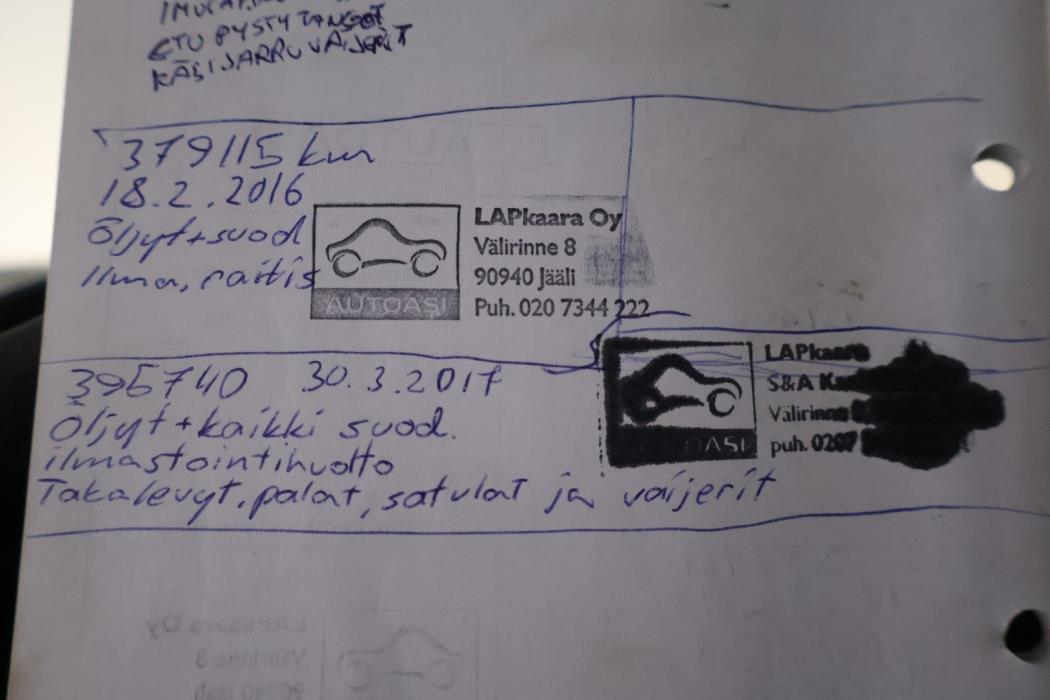 ETU PYSTY TANGOT
KÄSIJARRUVAIJERIT
379115 km
18.2.2016
Öljyt+suod
Ilma, raitis
AUTOASI
LAPkaara Oy
Välirinne 8
90940 Jääli
Puh. 020 7344 222
395740 30.3.2017
Öljyt+kaikki suod.
ilmastointihuolto
Takalevyt, palat, satulat ja vaijerit
ASI
LAPkaara
S&A
Välirinne
puh. 0207